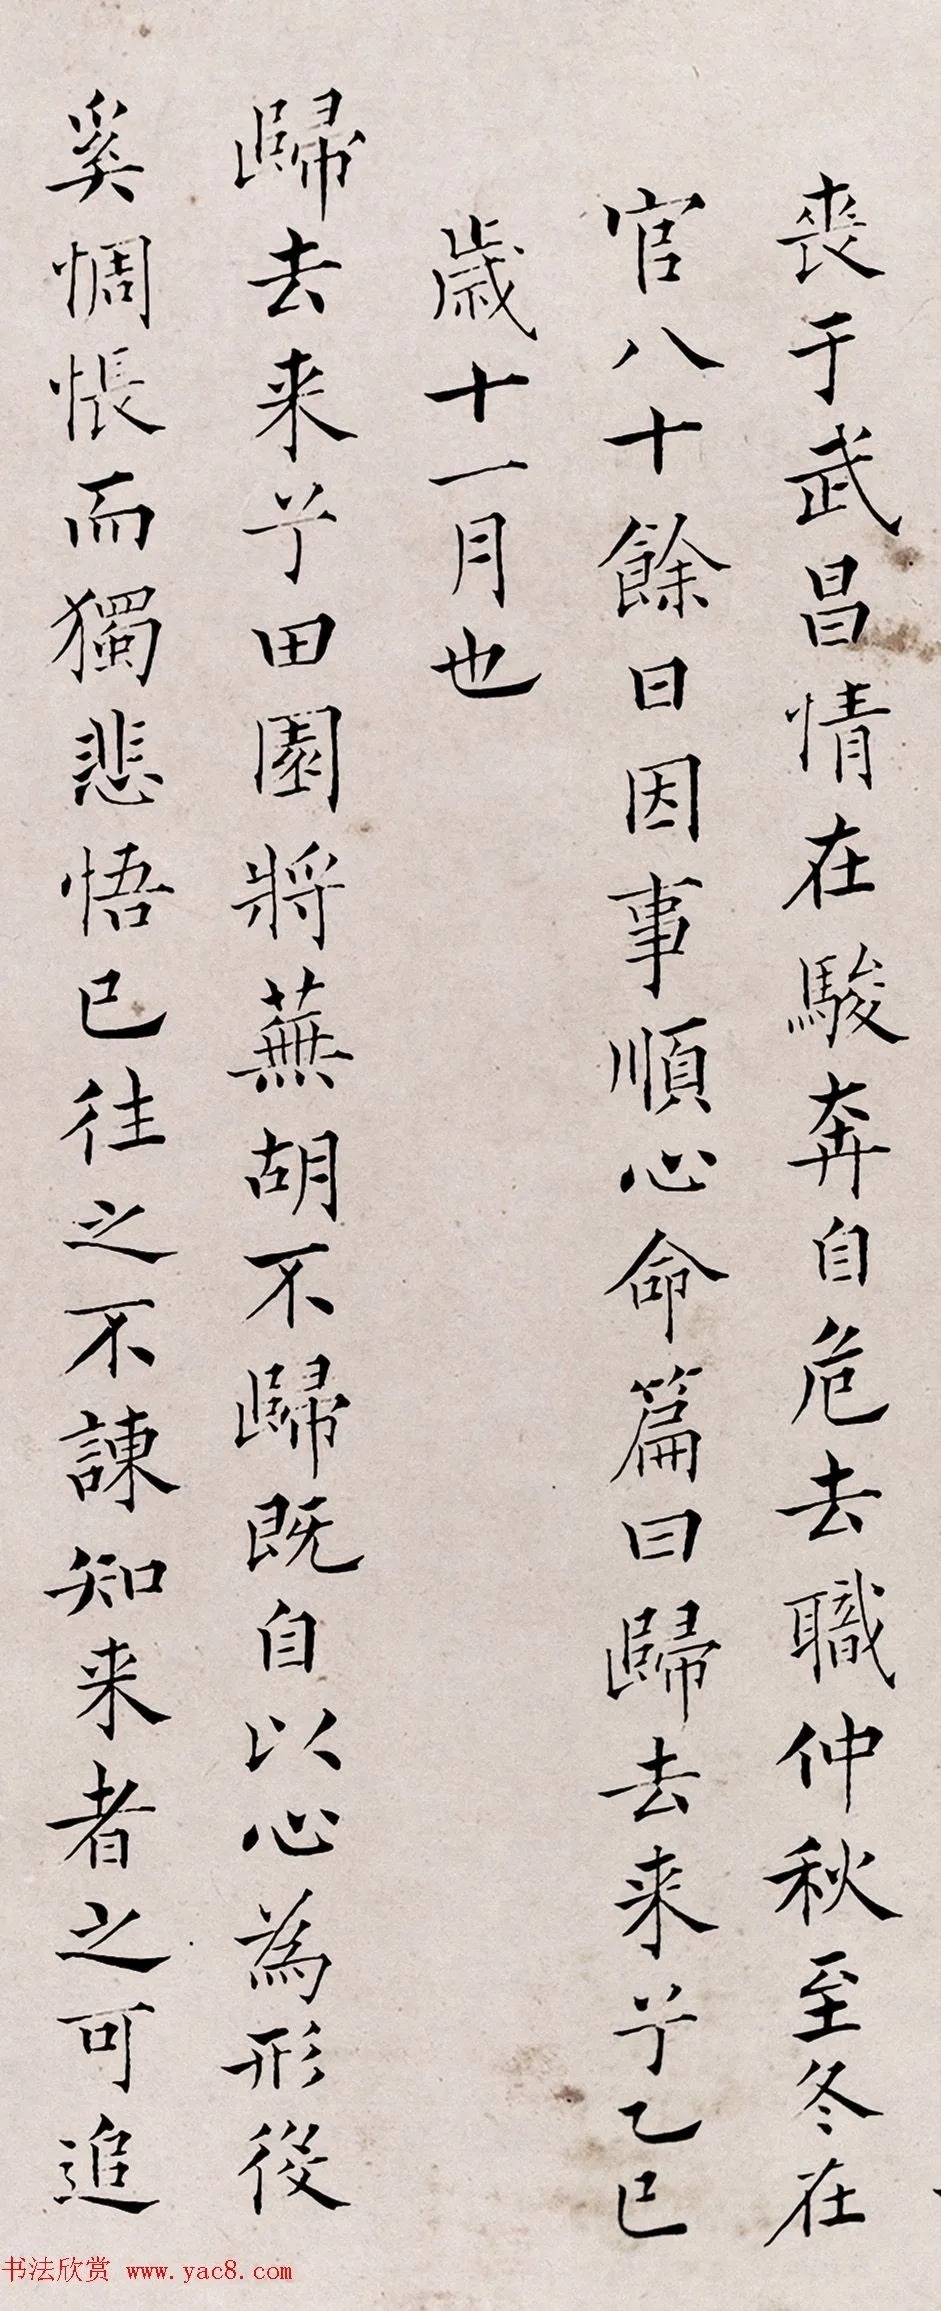 喪于武昌情在駿奔自危去職仲秋至冬在
官八十餘日因事順心命篇曰歸去来兮乙巳
歲十一月也
歸去来兮田園將蕪胡不歸既自以心為形役
奚惆悵而獨悲悟已往之不諫知来者之可追
书法欣赏 www.yac8.com